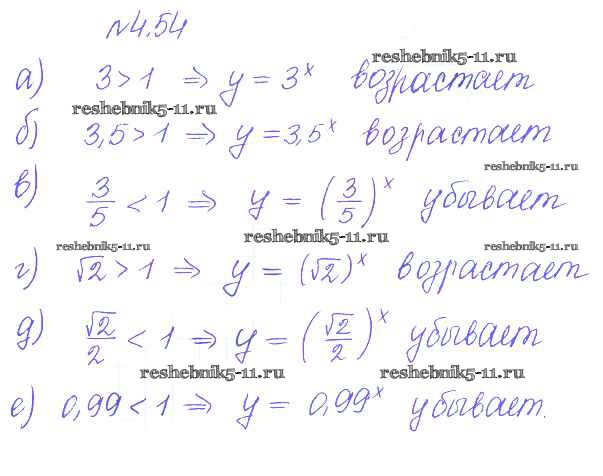 №4.54
reshebnik5-11.ru
а) 3>1 ⇒ y = 3ˣ возрастает
reshebnik5-11.ru
б) 3,5>1 ⇒ y = 3,5ˣ возрастает
reshebnik5-11.ru
в) 3/5 < 1 ⇒ y = (3/5)ˣ убывает
reshebnik5-11.ru
reshebnik5-11.ru reshebnik5-11.ru
г) √2 > 1 ⇒ y = (√2)ˣ возрастает
д) √2/2 < 1 ⇒ y = (√2/2)ˣ убывает
reshebnik5-11.ru reshebnik5-11.ru
е) 0,99 < 1 ⇒ y = 0,99ˣ убывает.